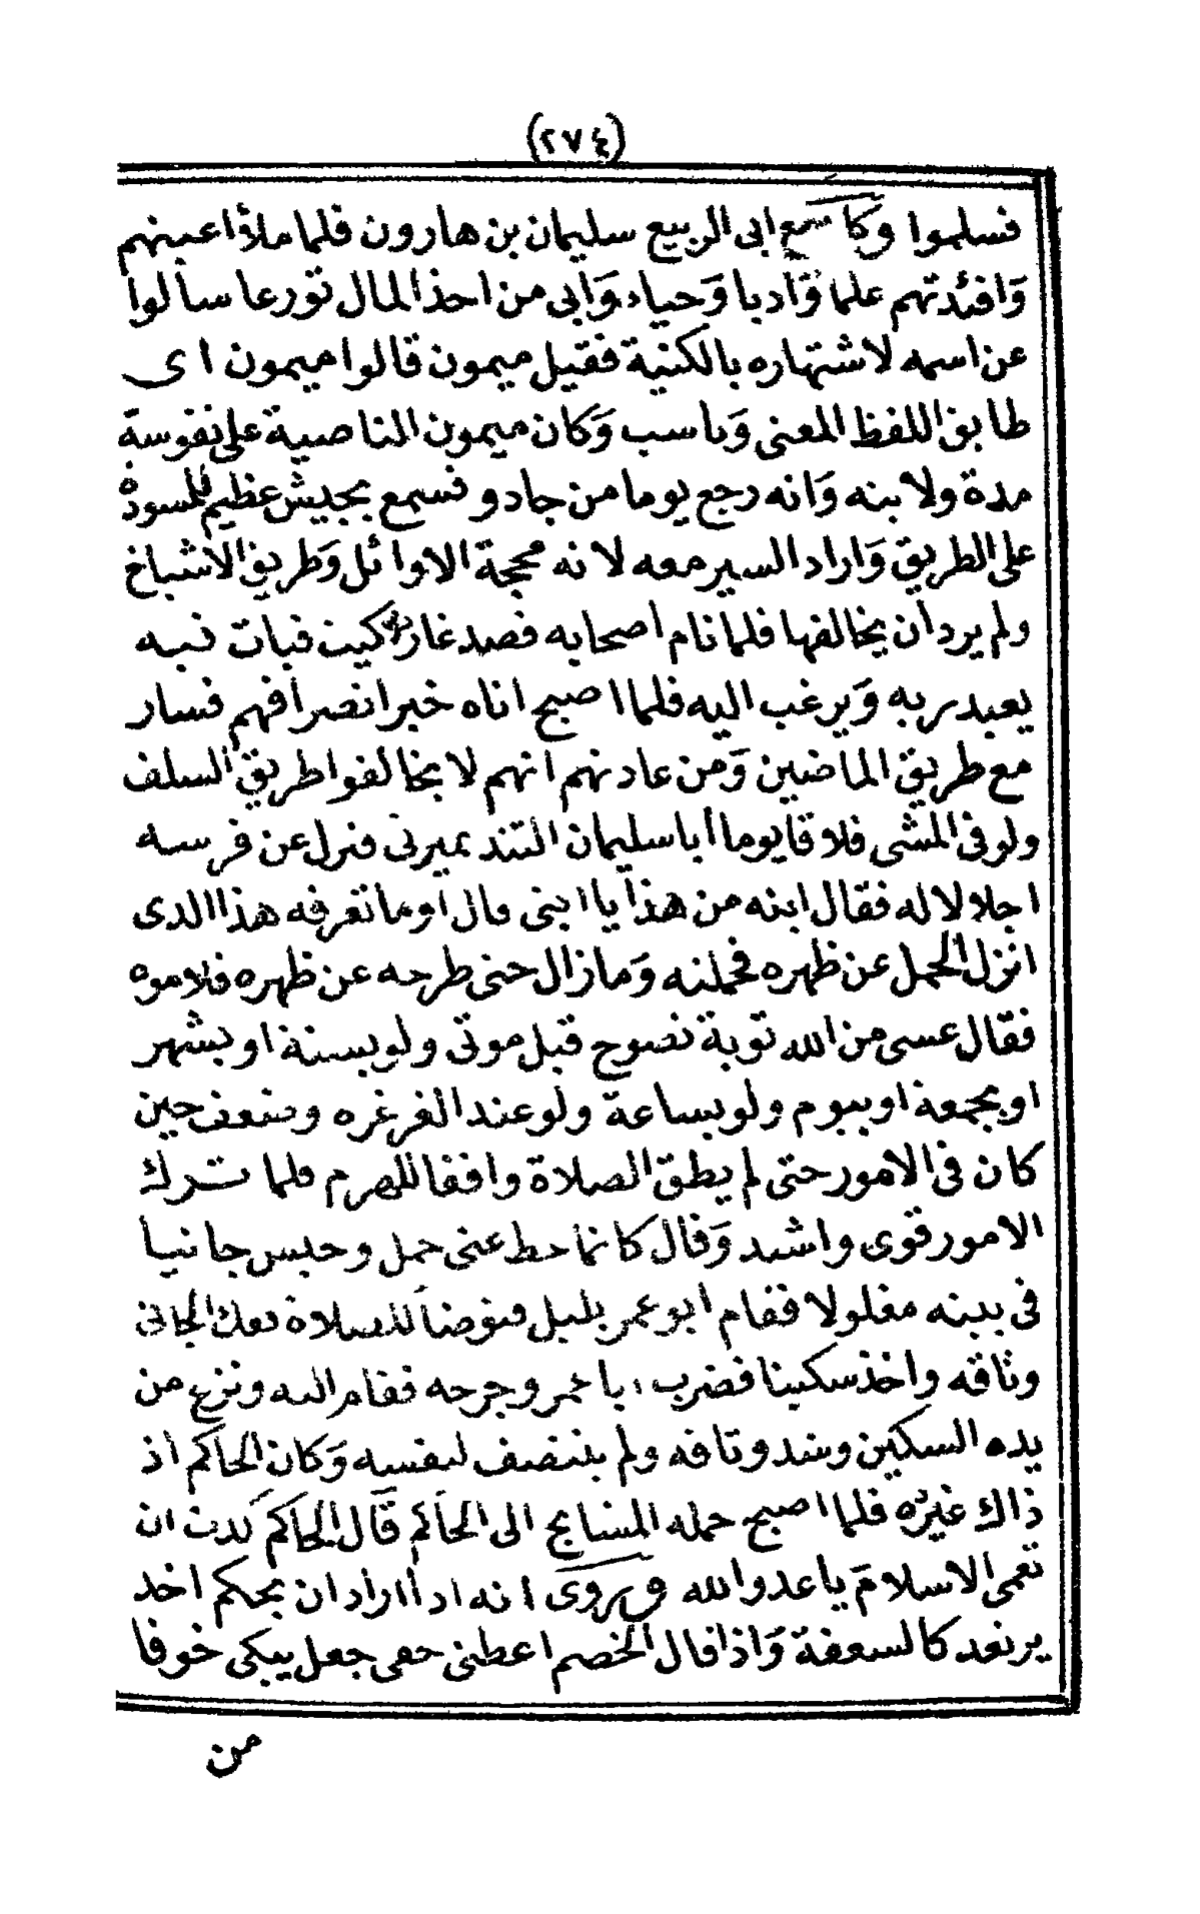 (٢٧٤)
فسلموا وكا سمع ابى الربيع سليمان بن هارون فلما ملأ اعينهم
وَافئدتهم علما وَادبا وَحياء وَابى من اخذ المال تورعا سألوا
عن اسمه لاشتهاره بالكنية فقيل ميمون قالوا ميمون اى
طابق اللفظ المعنى وَناسب وَكان ميمون الناصية على نفوسة
مدة ولابنه وَانه رجع يوما من جادو فسمع بجيش عظيم للمسودة
على الطريق وَاراد السير معه لانه محجة الاوائل وَطريق الاشياخ
ولم يرد ان يخالفها فلما نام اصحابه قصد غار كيت فبات فيه
يعبد ربه وَيرغب اليه فلما اصبح اتاه خبر انصرافهم فسار
مع طريق الماضين وَمن عادتهم انهم لا يخالفوا طريق السلف
ولو فى المشى فلاقا يوما أبا سليمان التندميرتى فنزل عن فرسه
اجلالا له فقال ابنه من هذا يا ابتى قال اوما تعرفه هذا الذى
انزل الحمل عن ظهره فحملته وَما زال حتى طرحه عن ظهره فلاموه
فقال عسى من الله توبة نصوح قبل موتى ولو بسنة او بشهر
او بجمعة او بيوم ولو بساعة ولو عند الغرغره وضعف حين
كان فى الامور حتى لم يطق الصلاة واقفا للهرم فلما تـرك
الامور قوى واشتد وَقال كانما حط عنى حمل وحبس جانيا
فى بيته مغلولا فقام ابو عمر بليل فتوضأ للصلاة ففك الجانى
وثاقه واخذ سكينا فضرب ابا عمر وجرحه فقام اليه ونزع من
يده السكين وشد وثاقه ولم ينتصف لنفسه وَكان الحاكم اذ
ذاك غيره فلما اصبح حمله المشايخ الى الحاكم قال الحاكم كدت ان
تعمى الاسلام يا عدو الله وَيروى انه اذا اراد ان يحكم اخذ
يرتعد كالسعفة وَاذا قال الخصم اعطنى حقى جعل يبكى خوفا
من